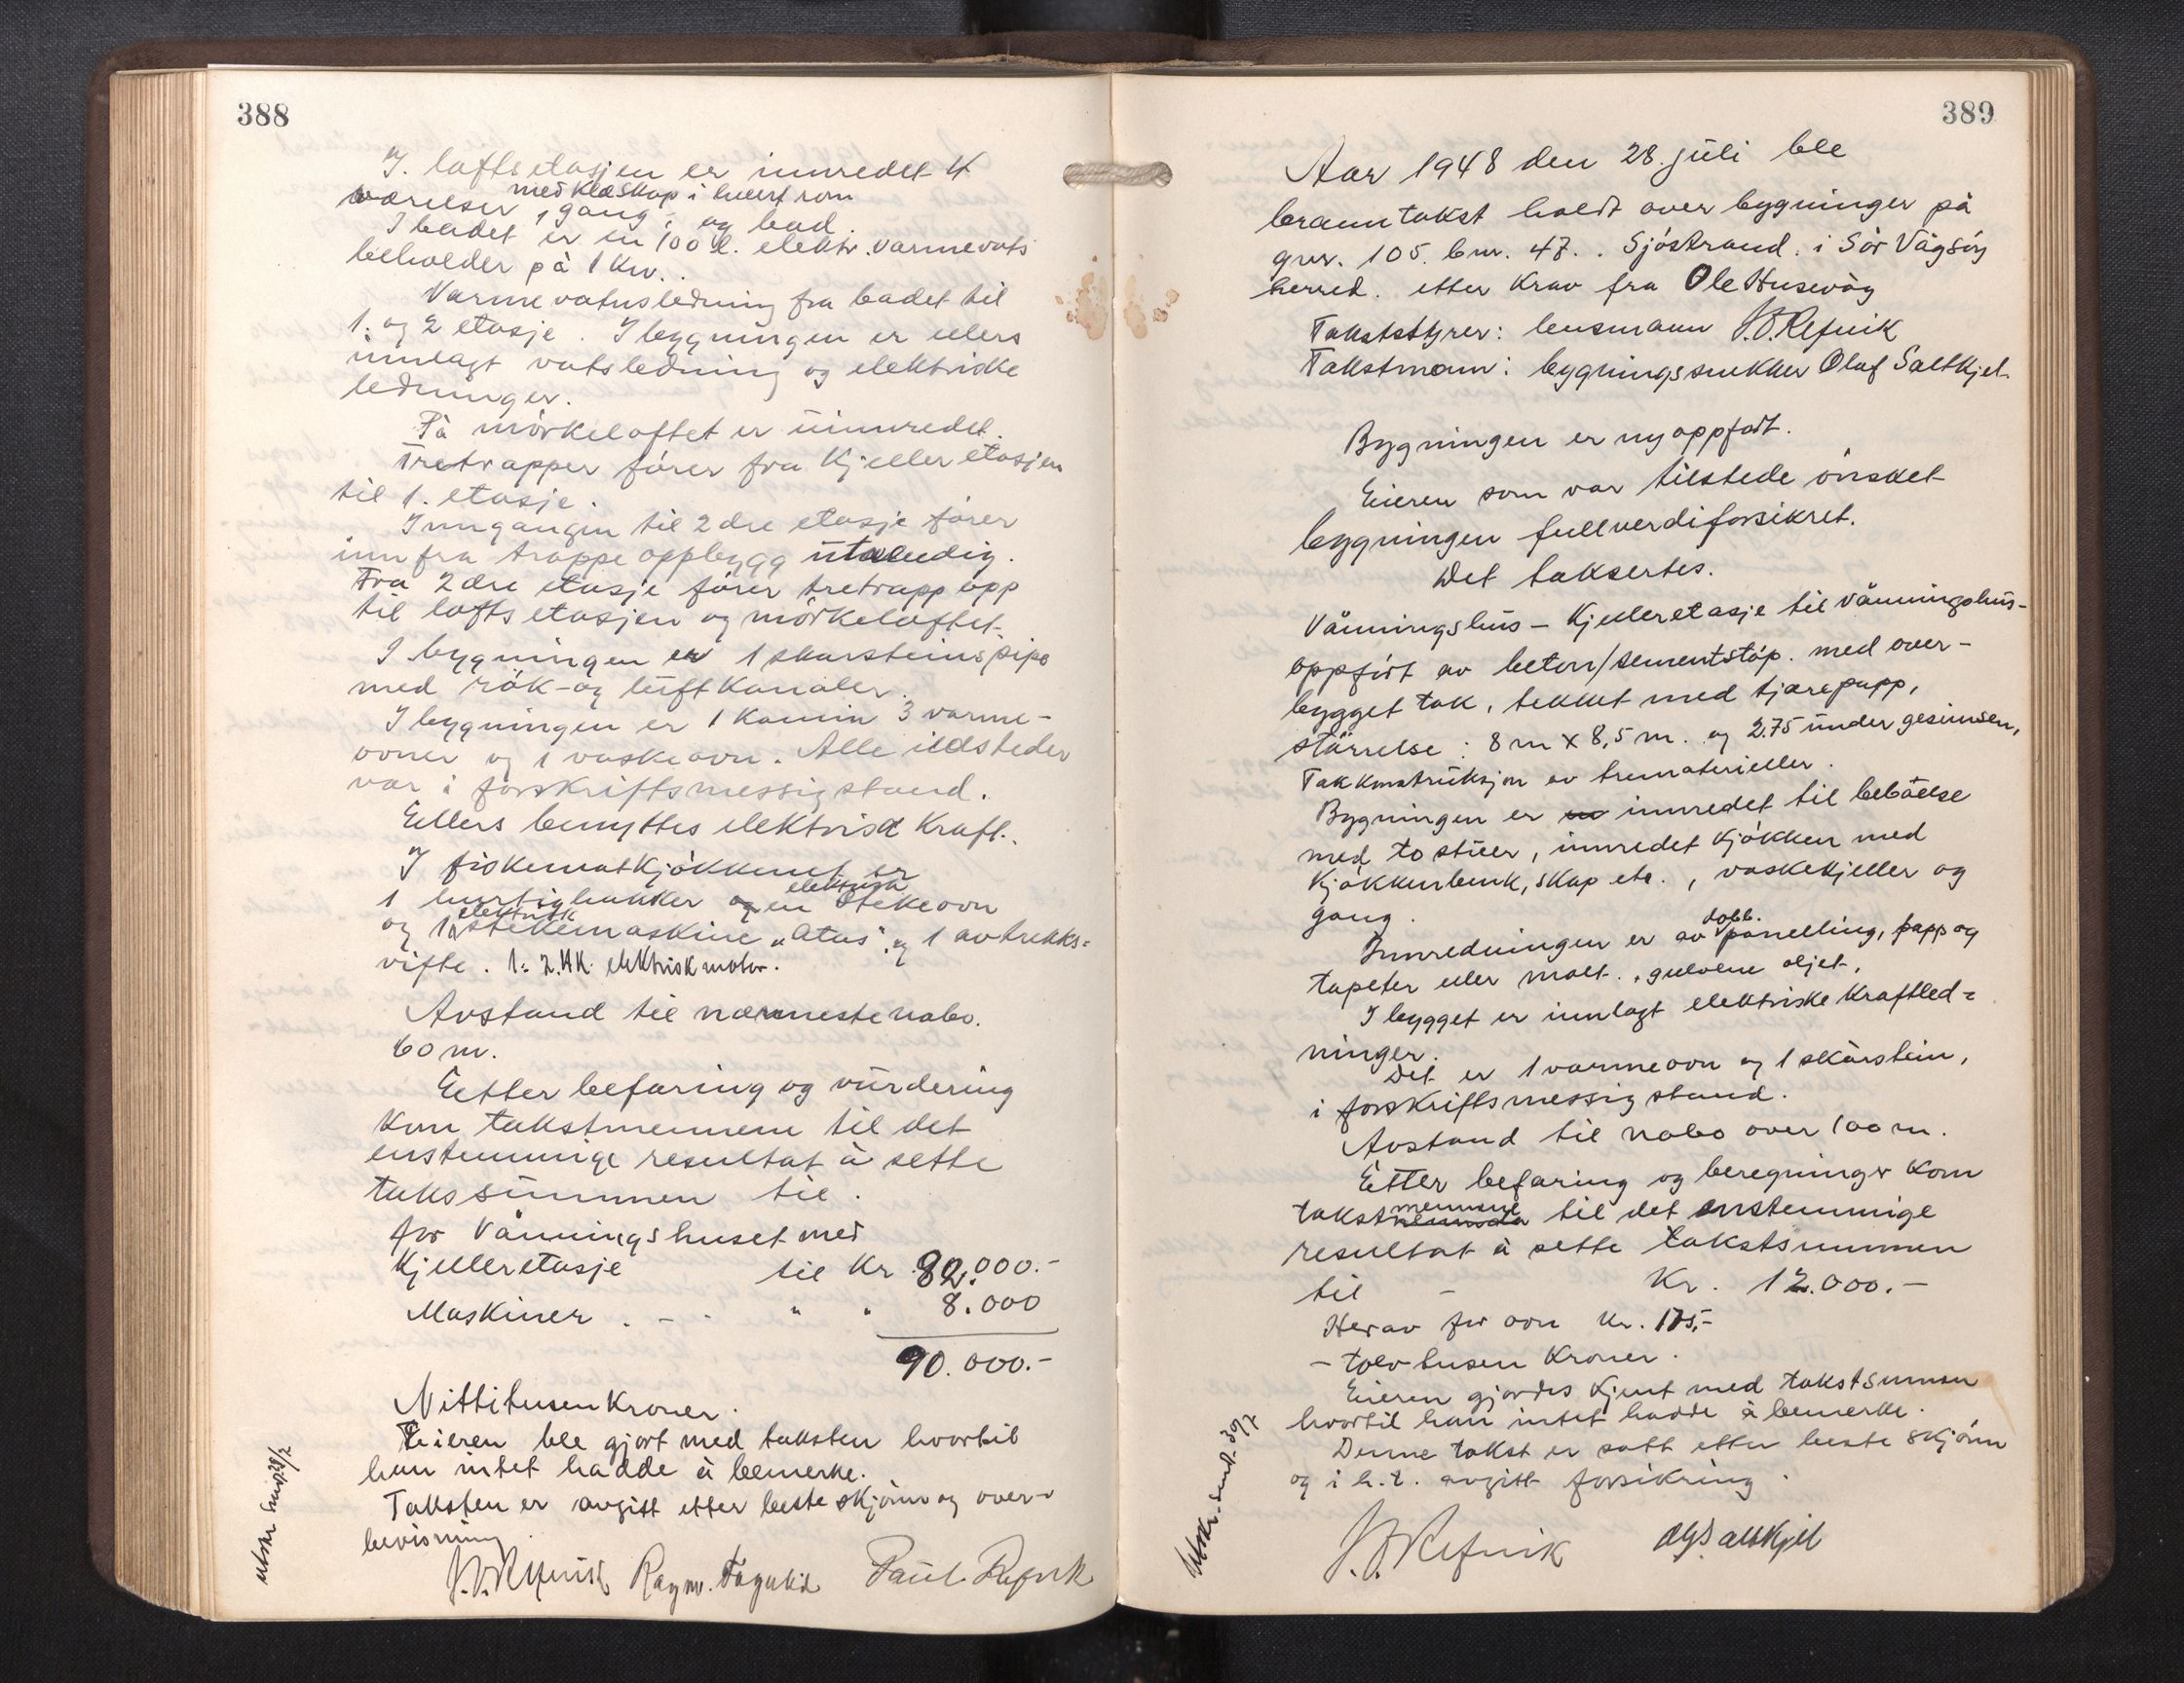 388
I. loftsetasjen er innredet 4
værelser, gang, og bad.
med kleskap i hvert rom
I badet er en 100 l. elektr. varmevats
beholder på 1 Kw.
Varmevatnsledning fra badet til
1. og 2 etasje. I bygningen er ellers
innlagt vatsledning og elektriske
ledninger.
På mörkeloftet er uinnredet.
Tretrapper förer fra Kjelleretasjen
til 1. etasje.
Inngangen til 2dre etasje förer
inn fra trappeoppbygg utvendig.
Fra 2dre etasje förer tretrapp opp
til loftsetasjen og mörkeloftet.
I bygningen er 1 skorsteinspipe
med rök- og luftkanaler.
I bygningen er 1 Kamin 3 varme-
ovner og 1 vaskeovn. Alle ildsteder
var i forskriftsmessig stand.
Ellers benyttes elektrisk Kraft.
I fiskematkjökkenet er
1 hurtighakker og en elektrisk stekeovn
og 1 elektrisk stekemaskine "Atas" og 1 avtrekks=
vifte. 1. 2.HK. elektrisk motor.
Avstand til nærmeste nabo.
60 m.
Etter befaring og vurdering
kom takstmennene til det
enstemmige resultat å sette
takssummen til.
for Våningshuset med
Kjelleretasje til Kr. 82.000.-
Maskiner . - . " " 8.000
90.000.-
Nittitusen Kroner.
Eieren ble gjort med taksten hvortil
han intet hadde å bemerke.
Taksten er avgitt etter beste skjönn og over-
bevisning.
J. O. Refvik Ragnv. Paul Refvik
389
Aar 1948 den 28. juli ble
branntakst holdt over bygninger på
gnr. 105. bnr. 47. . Sjöstrand. i Sör Vågsöy
herred. etter Krav fra Ole Husevåg
Takststyrer: lensmann J.O. Refvik
Takstmann: bygningssnekker Olaf Saltkjel.
Bygningen er nyoppfört.
Eieren som var tilstede önsket
bygningen fullverdiforsikret.
Det taksertes.
Våningshus - Kjelleretasje til våningshus-
oppfört av beton/sementstöp. med over-
bygget tak, tekket med tjærepapp,
störrelse: 8 m x 8,5 m. og 2.75 under gesimsen,
Takkonstruksjon av trematerialler.
Bygningen er innredet til beboelse
med to stuer, innredet Kjökken med
Kjökkenbenk, skap etc. , vaskekjeller og
gang.
Innredningen er av dobb. panelling, papp og
tapeter eller malt. , gulvene oljet.
I bygget er innlagt elektriske Kraftled=
ninger.
Det er 1 varmeovn og 1 skorstein,
i forskriftsmessig stand.
Avstand til nabo over 100 m.
Etter befaring og beregninger kom
takstmennene til det enstemmige
resultat å sette takstsummen
til - Kr. 12.000.-
Herav for ovn Kr. 175,-
- tolv tusen Kroner.
Eieren gjordes kjent med takstsummen
hvortil han intet hadde å bemerke.
Denne takst er satt etter beste skjönn
og i h.t. avgitt forsikring.
J. O. Refvik O. Saltkjel
Utskr. sendt. 30/7